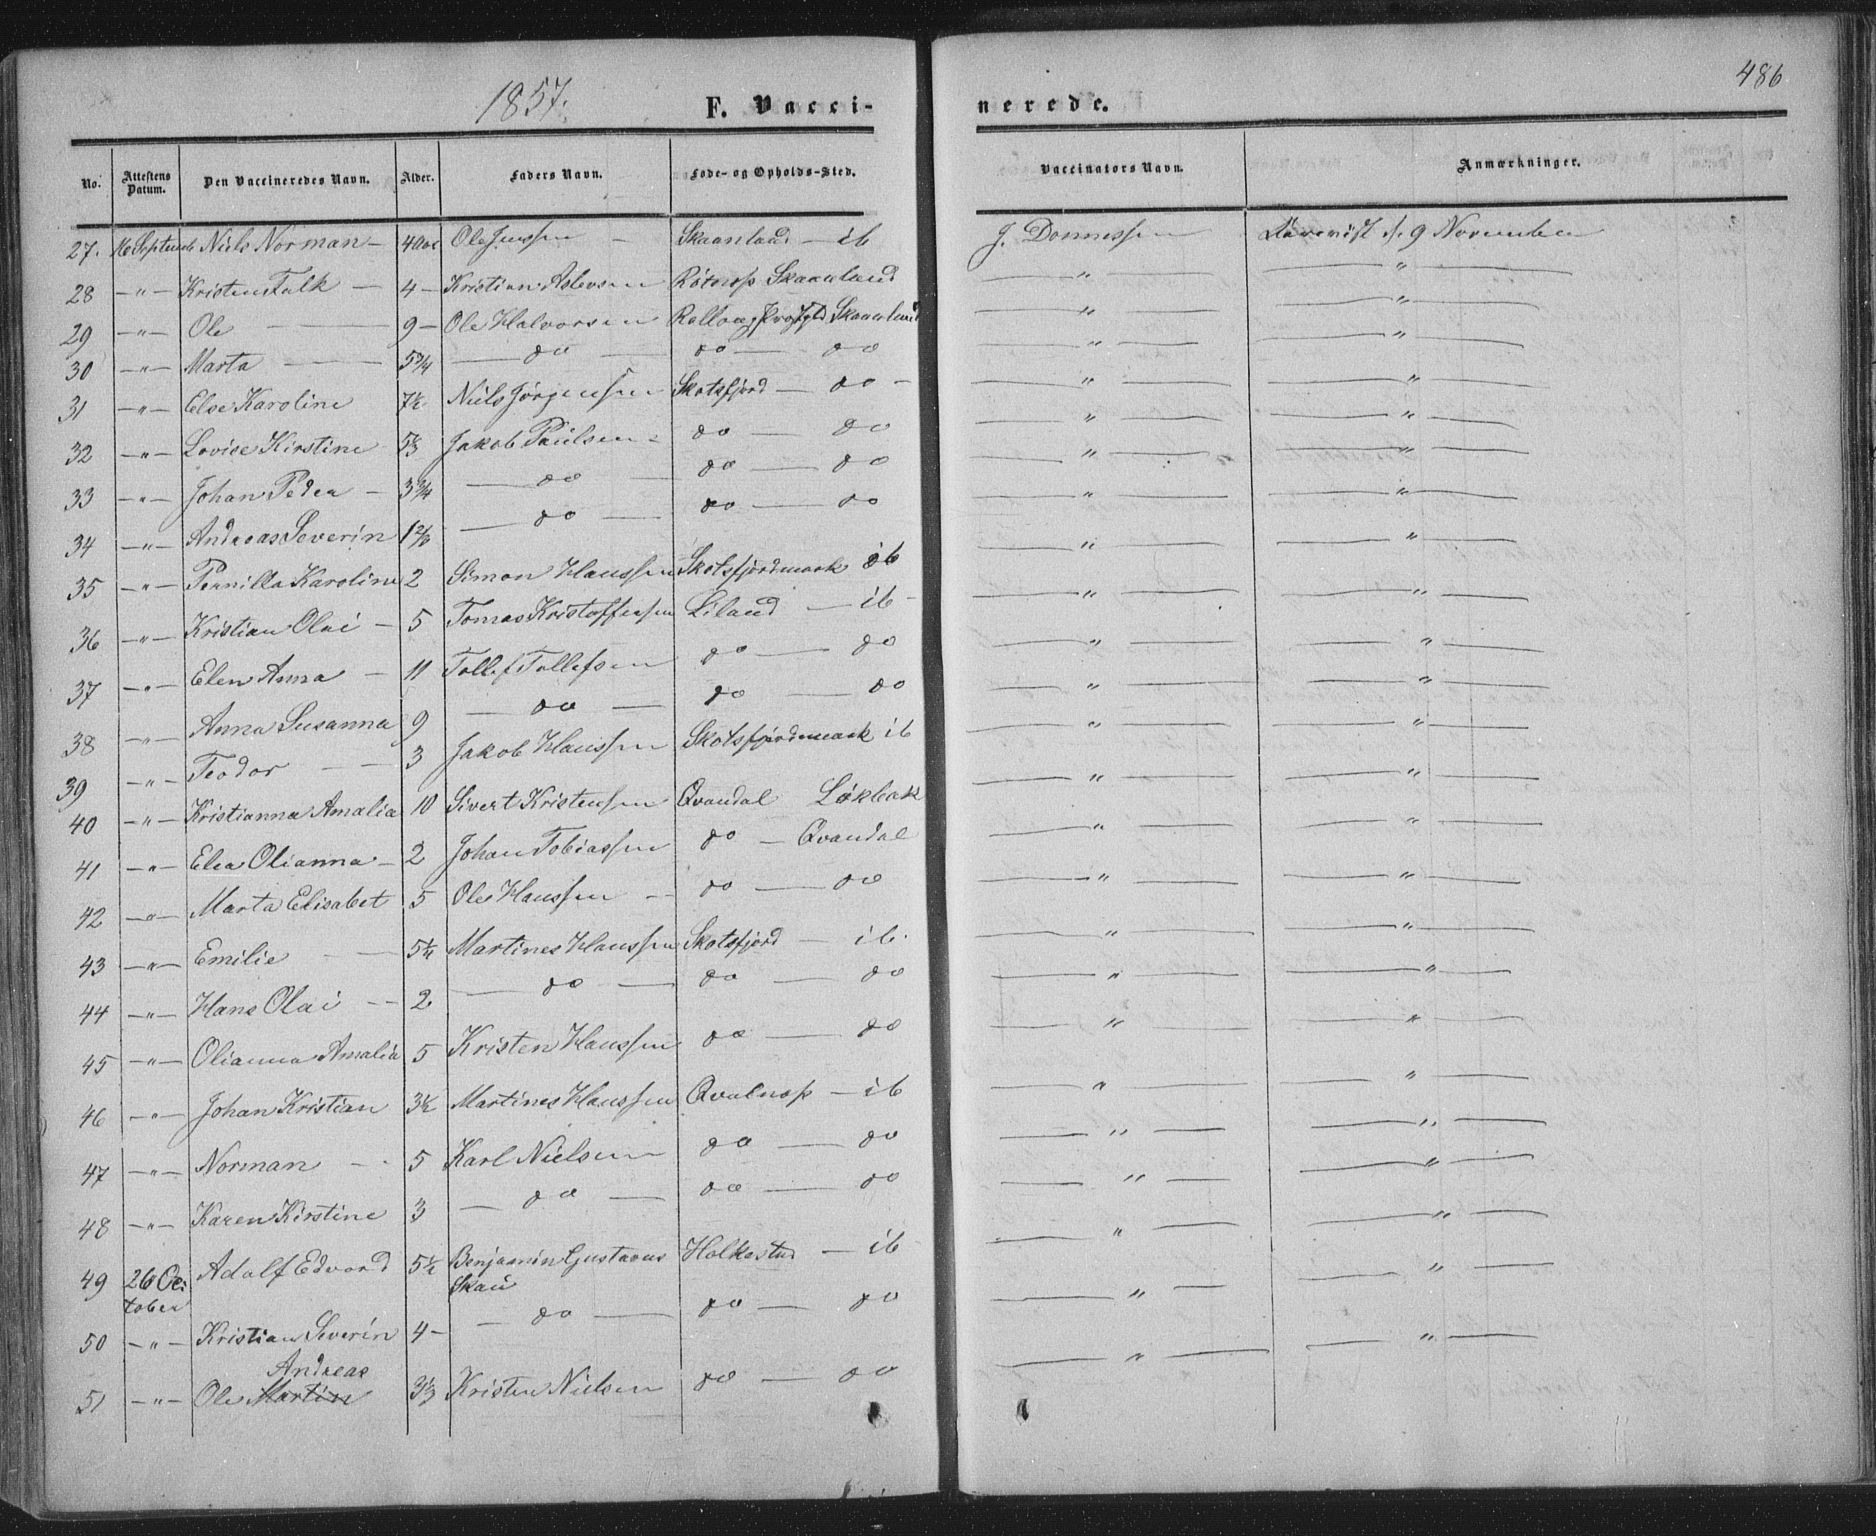 1857.
F. Vacci-
nerede.
486
No. Attestens Datum. Den Vaccineredes Navn. Alder. Faders Navn. Føde- og Opholds-Sted. Vaccinators Navn. Anmærkninger.
27. 16 Septemb Niels Norman — 4 Aar Ole Jenssen — Skaanland — ib J. Donnessen 9 November
28 —"— Kristen Falk — 4 — Kristian Aslevsen Skaanland —"— —"—
29 —"— Ole — 9 — Ole Halvorsen Skaanland —"— —"—
30 —"— Marta — 5 3/4 — do — do — do —"— —"—
31 —"— Else Karoline 7 1/2 Niels Jörgensen Skotsfjord — do — —"— —"—
32 —"— Lovise Kirstine 5 1/3 Jakob Paulsen do — do —"— —"—
33 —"— Johan Peder — 3 3/4 — do — do — do —"— —"—
34 —"— Andreas Severin — do — do — do —"— —"—
35 —"— Pernilla Karoline 2 Simon Hanssen Skotsfjordmark ib —"— —"—
36 —"— Kristian Olai — 5 Tomas Kristoffersen Liland — ib — —"— —"—
37 —"— Elen Anna — 11 Tollef Tollefsen do — do —"— —"—
38 —"— Anna Susanna 9 — do — do — do —"— —"—
39 —"— Teodor — 3 Jakob Hanssen Skotsfjordmark ib —"— —"—
40 —"— Kristianna Amalia 10 Sivert Kristensen Qvandal Løkbak —"— —"—
41 —"— Elea Olianna — 2 Johan Tobiassen do — Qvandal —"— —"—
42 —"— Marta Elisabet 5 Ole Hanssen — do — do —"— —"—
43 —"— Emilie — 5 1/2 Martines Hanssen Skotsfjord — ib. —"— —"—
44 —"— Hans Olai — 2 — do — do — do —"— —"—
45 —"— Olianna Amalia 5 Kristen Hanssen do — do —"— —"—
46 —"— Johan Kristian 3 1/2 Martines Hanssen Qvalnæs — ib —"— —"—
47 —"— Norman — 5 Karl Nielsen do — do —"— —"—
48 —"— Karen Kirstine 3 — do — do — do —"— —"—
49 26 Oc- Adolf Edvard 5 1/2 Benjamin Gustavus Holkestad — ib —"— —"—
tober Skau
50 —"— Kristian Severin 4 — — do — do — do —"— —"—
Andreas
51 —"— Ole Martin 3 1/3 Kristen Nielsen do — do —"— —"—